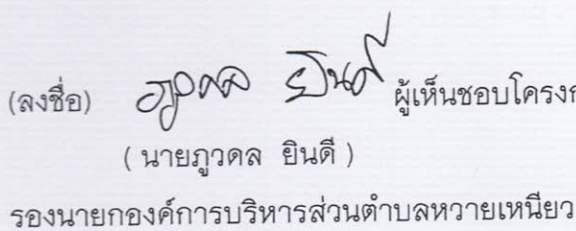 (ลงชื่อ) ภูวดล ยินดี ผู้เห็นชอบโครงก
( นายภูวดล ยินดี )
รองนายกองค์การบริหารส่วนตำบลหวายเหนียว